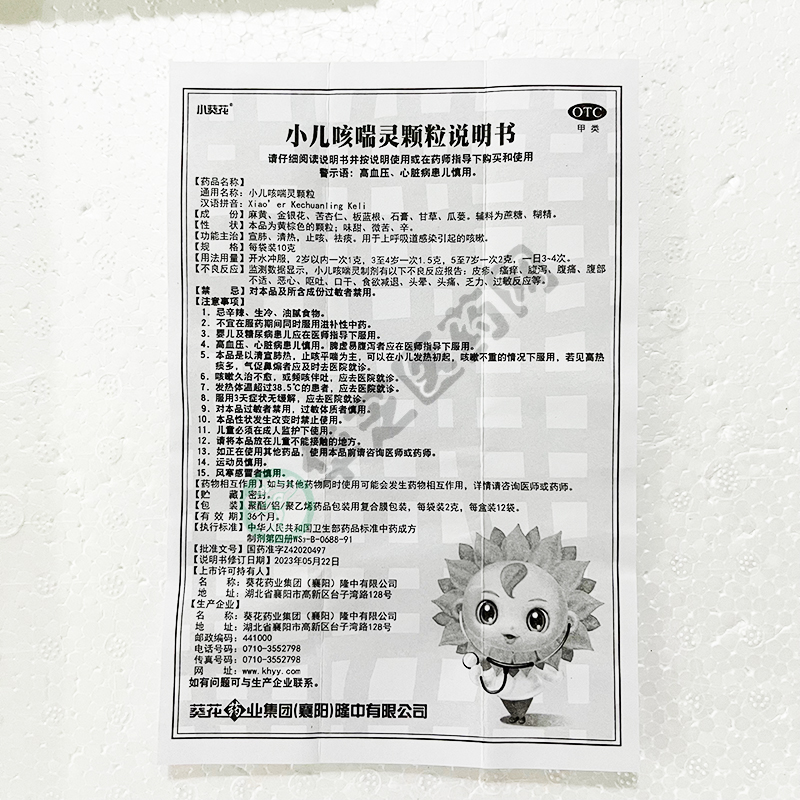 小葵花®
OTC
甲类
小儿咳喘灵颗粒说明书
请仔细阅读说明书并按说明使用或在药师指导下购买和使用
警示语：高血压、心脏病患儿慎用。
【药品名称】
通用名称：小儿咳喘灵颗粒
汉语拼音：Xiao’er Kechuanling Keli
【成 份】麻黄、金银花、苦杏仁、板蓝根、石膏、甘草、瓜蒌。辅料为蔗糖、糊精。
【性 状】本品为黄棕色的颗粒；味甜、微苦、辛。
【功能主治】宣肺、清热，止咳、祛痰。用于上呼吸道感染引起的咳嗽。
【规 格】每袋装10克
【用法用量】开水冲服，2岁以内一次1克，3至4岁一次1.5克，5至7岁一次2克，一日3~4次。
【不良反应】监测数据显示，小儿咳喘灵制剂有以下不良反应报告：皮疹、瘙痒、腹泻、腹痛、腹部
不适、恶心、呕吐、口干、食欲减退、头晕、头痛、乏力、过敏反应等。
【禁 忌】对本品及所含成份过敏者禁用。
【注意事项】
1．忌辛辣、生冷、油腻食物。
2．不宜在服药期间同时服用滋补性中药。
3．婴儿及糖尿病患儿应在医师指导下服用。
4．高血压、心脏病患儿慎用。脾虚易腹泻者应在医师指导下服用。
5．本品是以清宣肺热，止咳平喘为主，可以在小儿发热初起，咳嗽不重的情况下服用，若见高热
痰多，气促鼻煽者应及时去医院就诊。
6．咳嗽久治不愈，或频咳伴吐，应去医院就诊。
7．发热体温超过38.5℃的患者，应去医院就诊。
8．服用3天症状无缓解，应去医院就诊。
9．对本品过敏者禁用，过敏体质者慎用。
10．本品性状发生改变时禁止使用。
11．儿童必须在成人监护下使用。
12．请将本品放在儿童不能接触的地方。
13．如正在使用其他药品，使用本品前请咨询医师或药师。
14．运动员慎用。
15．风寒感冒者慎用。
【药物相互作用】如与其他药物同时使用可能会发生药物相互作用，详情请咨询医师或药师。
【贮 藏】密封。
【包 装】聚酯/铝/聚乙烯药品包装用复合膜包装，每袋装2克，每盒装12袋。
【有 效 期】36个月。
【执行标准】中华人民共和国卫生部药品标准中药成方
制剂第四册WS₃-B-0688-91
【批准文号】国药准字Z42020497
【说明书修订日期】2023年05月22日
【上市许可持有人】
名 称：葵花药业集团（襄阳）隆中有限公司
地 址：湖北省襄阳市高新区台子湾路128号
【生产企业】
名 称：葵花药业集团（襄阳）隆中有限公司
地 址：湖北省襄阳市高新区台子湾路128号
邮政编码：441000
电话号码：0710-3552798
传真号码：0710-3552798
网 址：www.khyy.com
如有问题可与生产企业联系。
葵花药业集团（襄阳）隆中有限公司